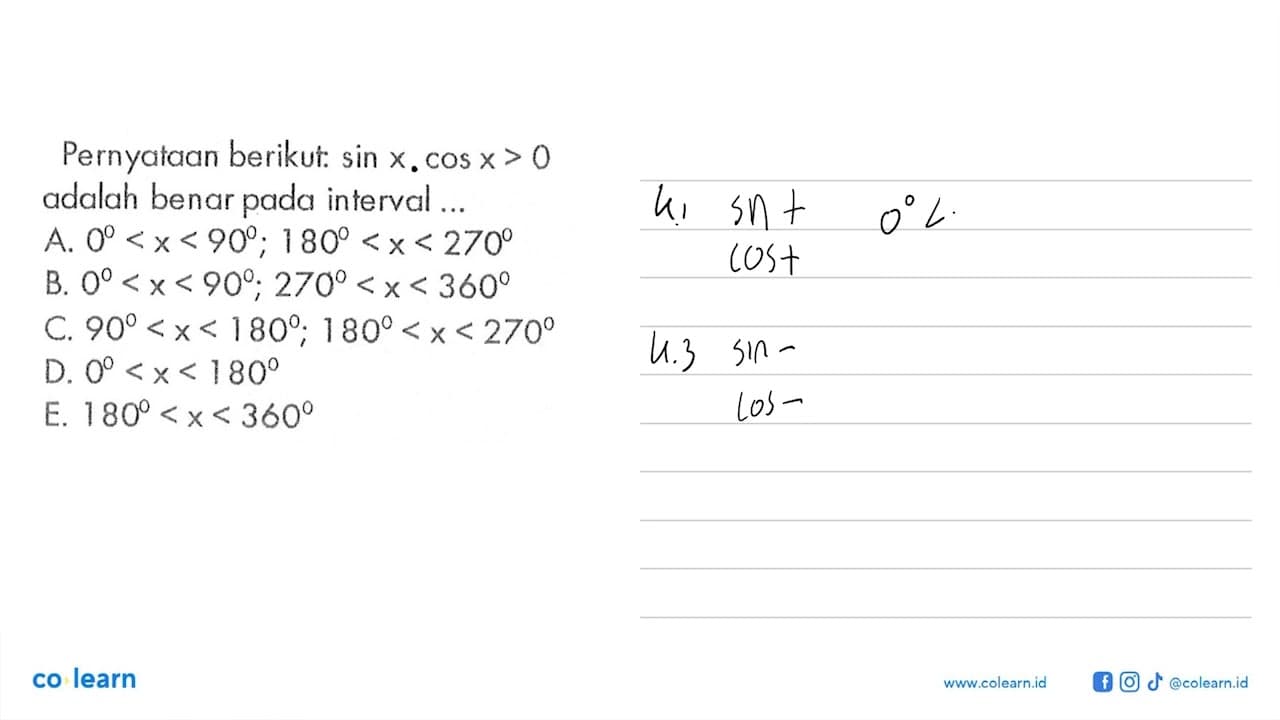 Pernyataan berikut: sin x . cos x > 0
adalah benar pada interval ...
A. 0⁰ < x < 90⁰; 180⁰ < x < 270⁰
B. 0⁰ < x < 90⁰; 270⁰ < x < 360⁰
C. 90⁰ < x < 180⁰; 180⁰ < x < 270⁰
D. 0⁰ < x < 180⁰
E. 180⁰ < x < 360⁰
k.1 sin + 0° <
cos +
k.3 sin -
cos -
co learn
www.colearn.id @colearn.id